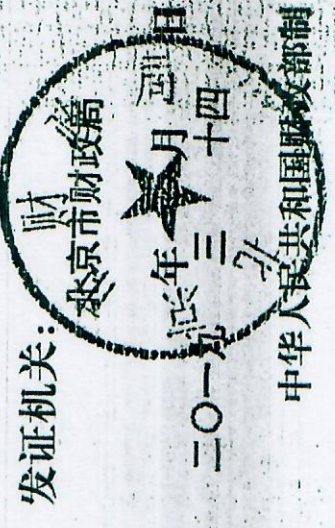 发证机关:
北京市财政局
二〇一九年三月十四日
中华人民共和国财政部制